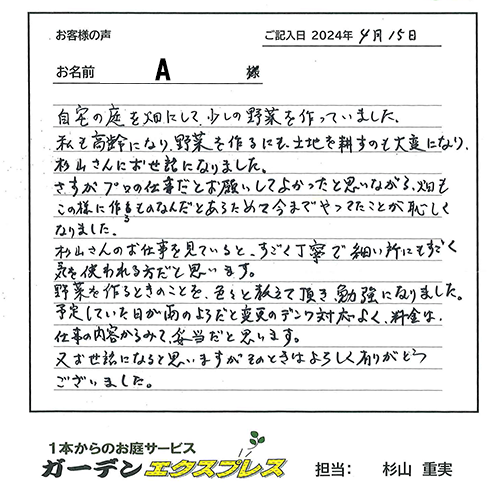 お客様の声
ご記入日 2024年 4月15日
お名前 A 様
自宅の庭を畑にして、少しの野菜を作っていました、
私も高齢になり、野菜を作るにも、土地を耕すのも大変になり、
杉山さんにお世話になりました。
さすが プロの仕事だとお願いしてよかったと思いながら、畑も
この様に作るものなんだとあらためて今までやってたことが恥しく
なりました。
杉山さんのお仕事を見ていると、すごく丁寧で細い所にもすごく
気を使われる方だと思います。
野菜を作るときのことを、色々と教えて頂き、勉強になりました。
予定していた日が雨のようだと変更のデンワ対応よく、料金は、
仕事の内容からみて、妥当だと思います。
又お世話になると思いますがそのときはよろしく有りがとう
ございました。
1本からのお庭サービス
ガーデンエクスプレス
担当： 杉山 重実